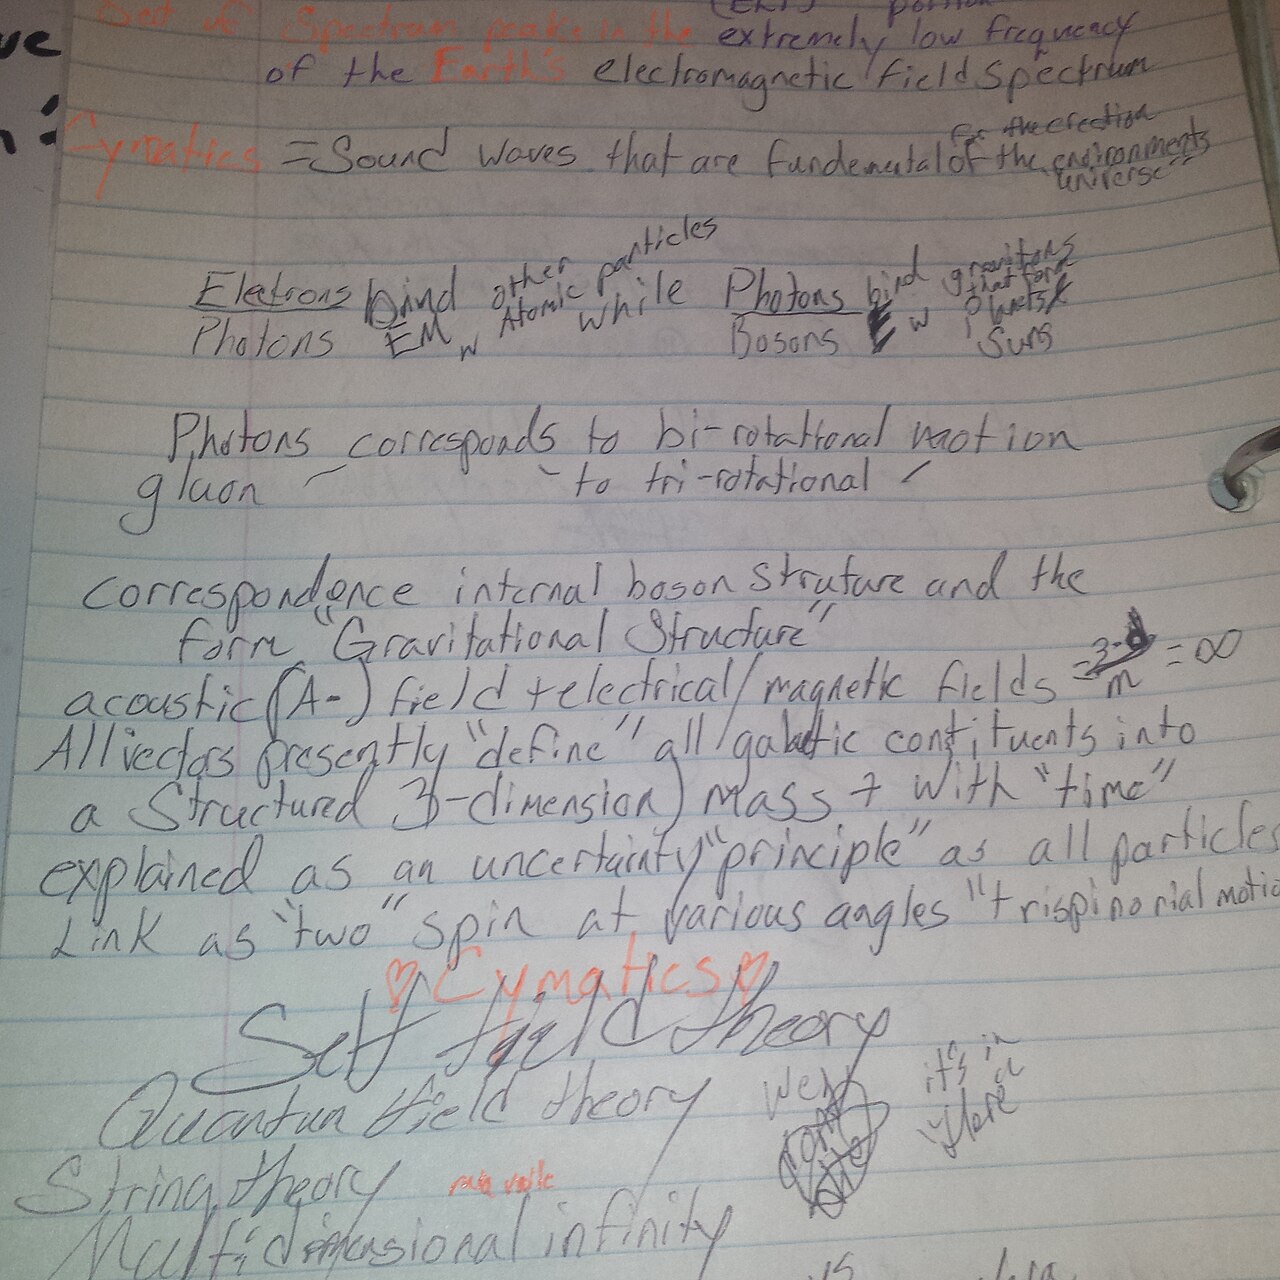 Set of Spectrum peaks in the extremely low frequency
of the Earth's electromagnetic field spectrum
Cymatics = Sound waves that are fundemental of the environments
for the creation
universe"
Electrons bind other particles while Photons bind gravitons
Photons EM w Atomic Bosons E w that form planets &
Suns
Photons corresponds to bi-rotational motion
gluon to tri-rotational
correspondence internal boson struture and the
form "Gravitational Structure"
acoustic (A-) field + electrical/magnetic fields = 3-d/m = ∞
All vectors presently "define" all galactic contituents into
a structured 3-dimension) mass + with "time"
explained as an uncertainty "principle" as all particles
Link as "two" spin at various angles "trispinorial motio
♡ Cymatics ♡
Self field theory
Quantun field theory
it's in
String theory
Multidimensional infinity